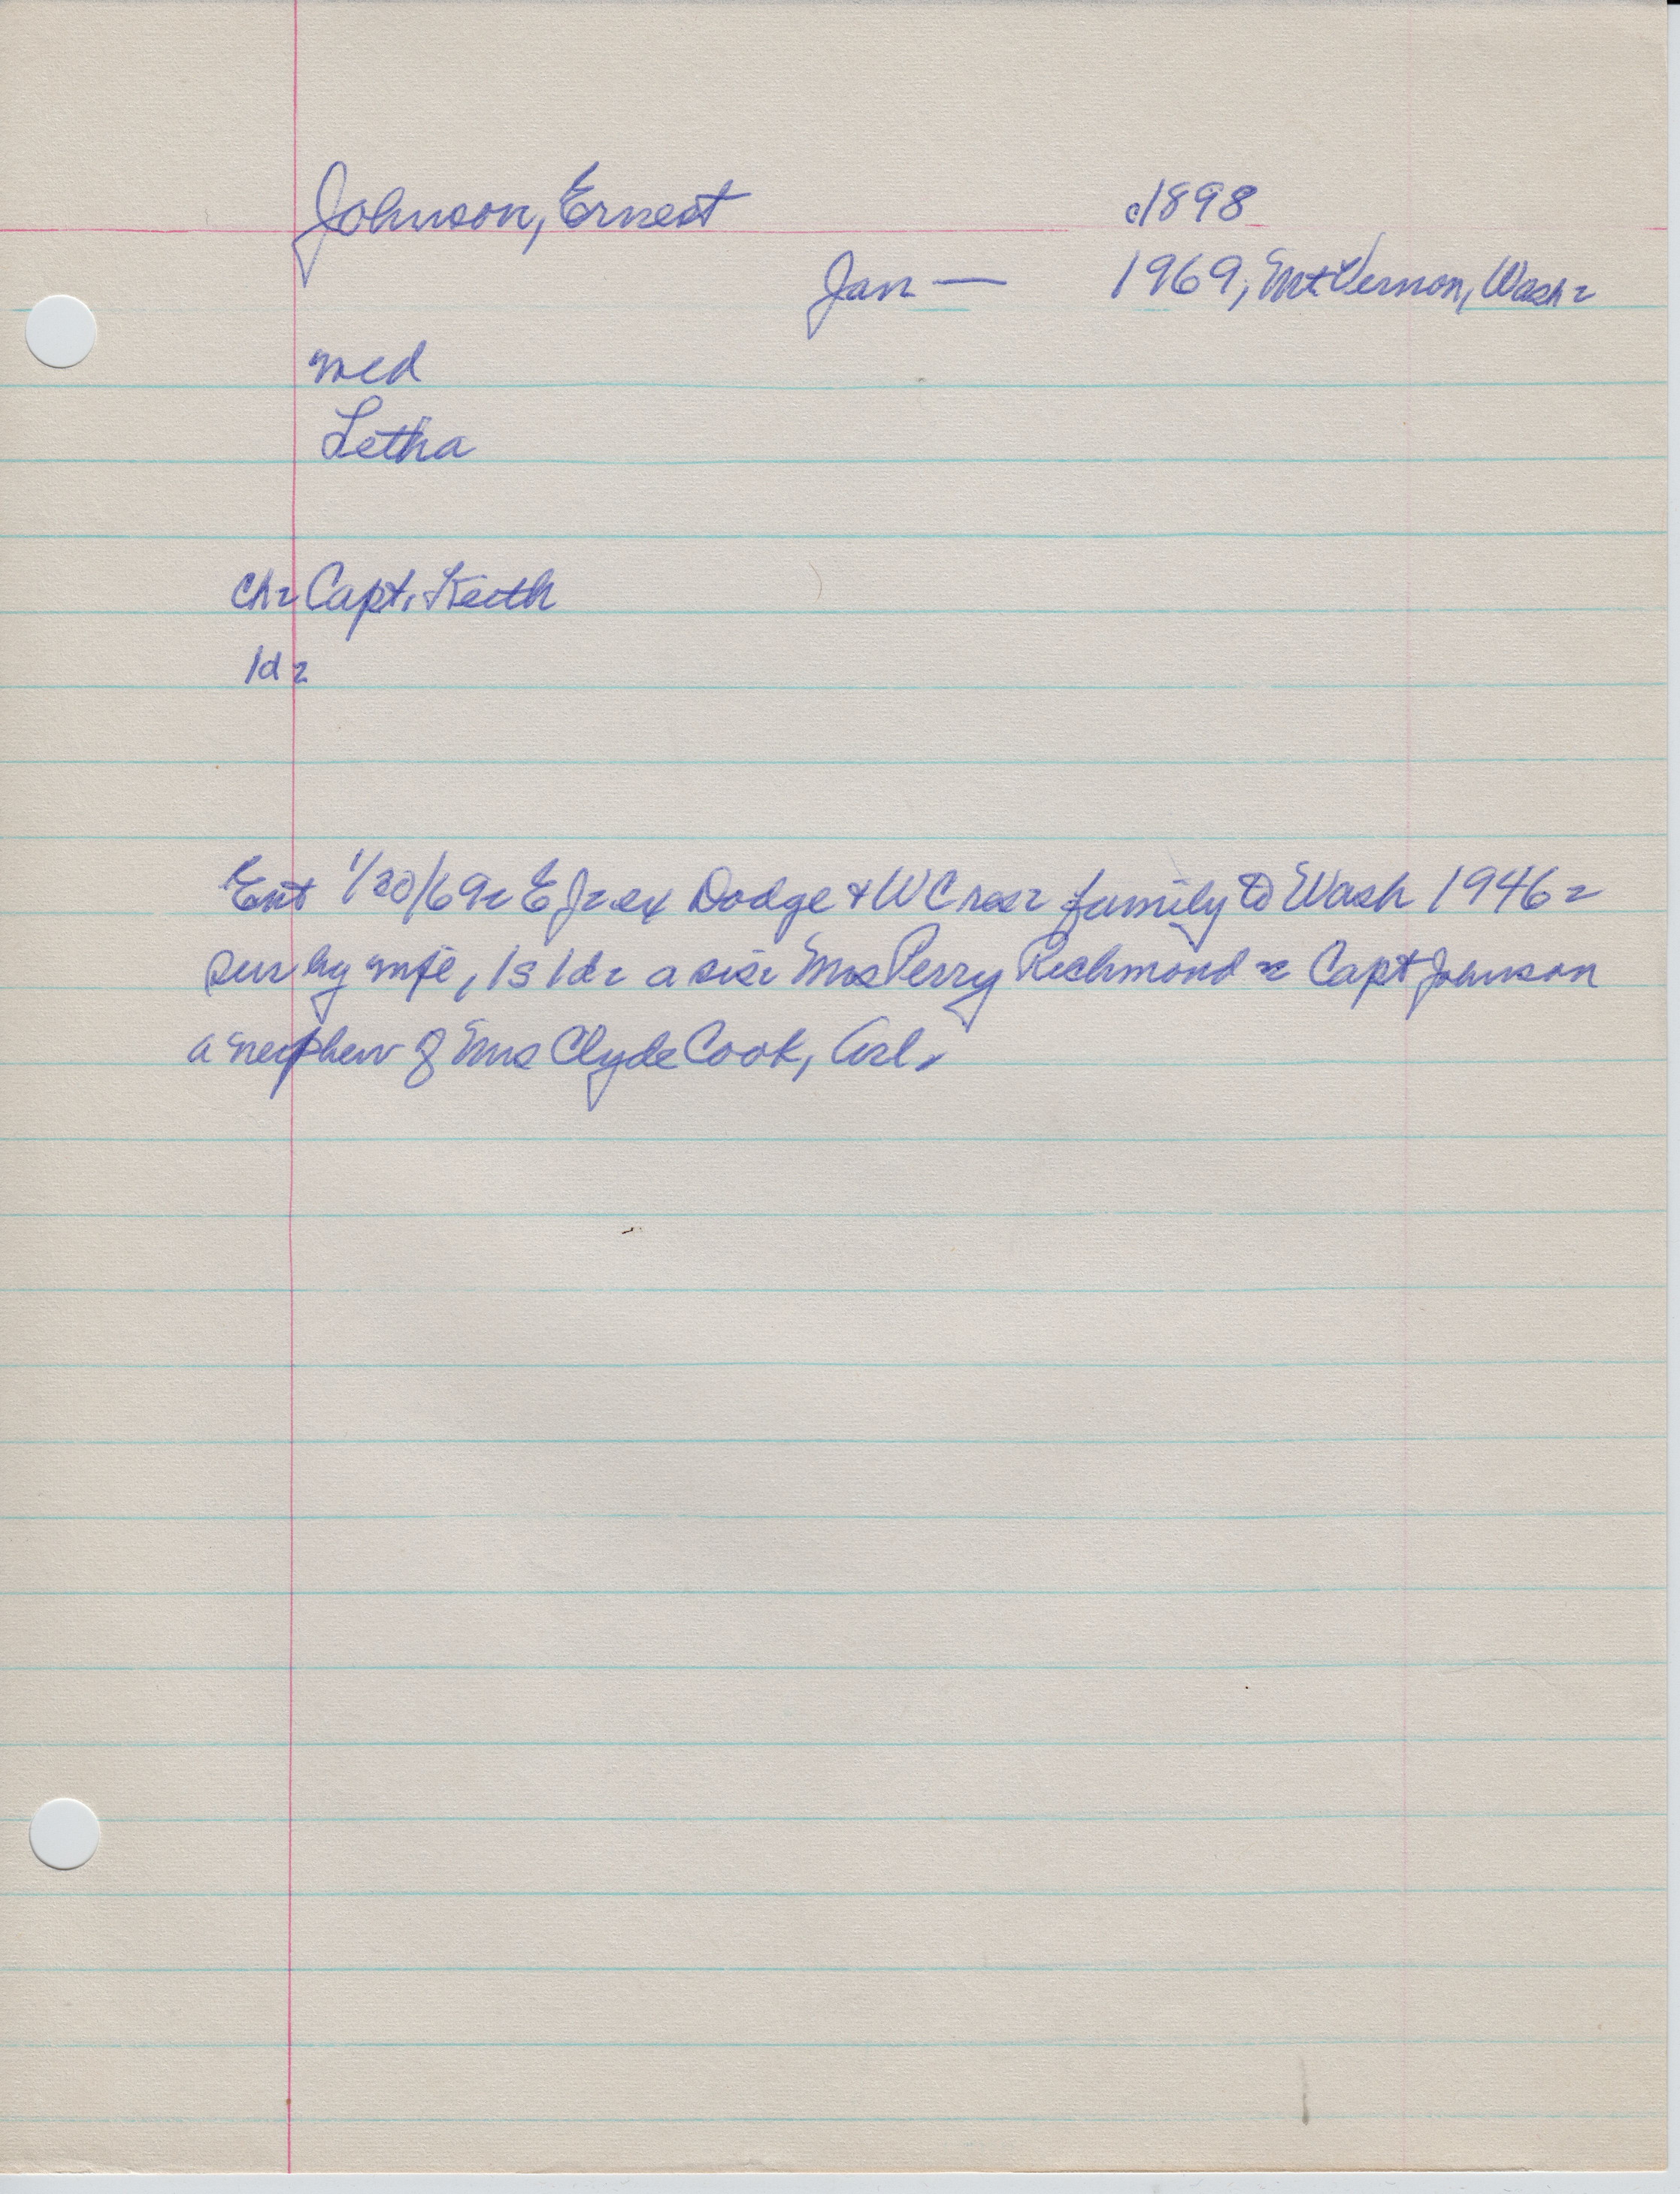 Johnson, Ernest c1898
Jan — 1969, Mt Vernon, Wash-
med
Letha
ch- Capt. Keith
1d-
Ent 1/20/69- E J- ex Dodge & W C res- family to Wash 1946-
sur by wife, 1s 1d- a sis- Mrs Perry Richmond - Capt Johnson
a nephew of Mrs Clyde Cook, Arl.